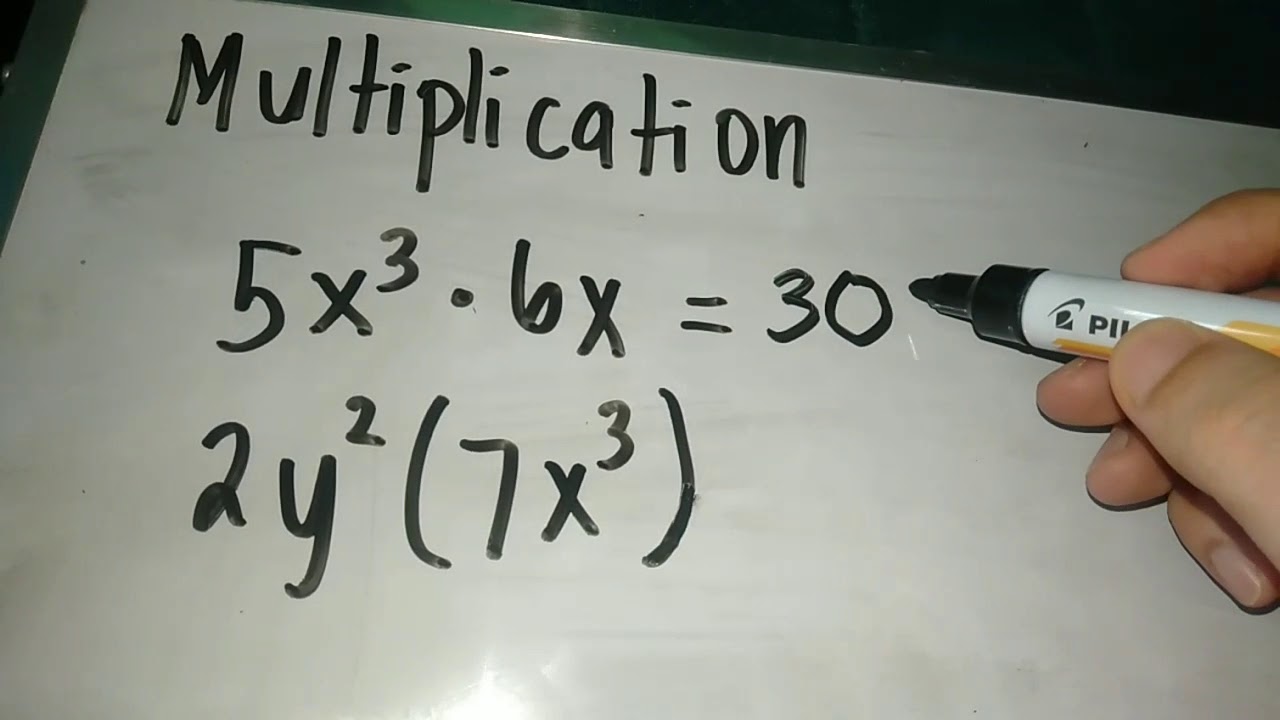 Multiplication
5x³ · 6x = 30
2y² (7x³)